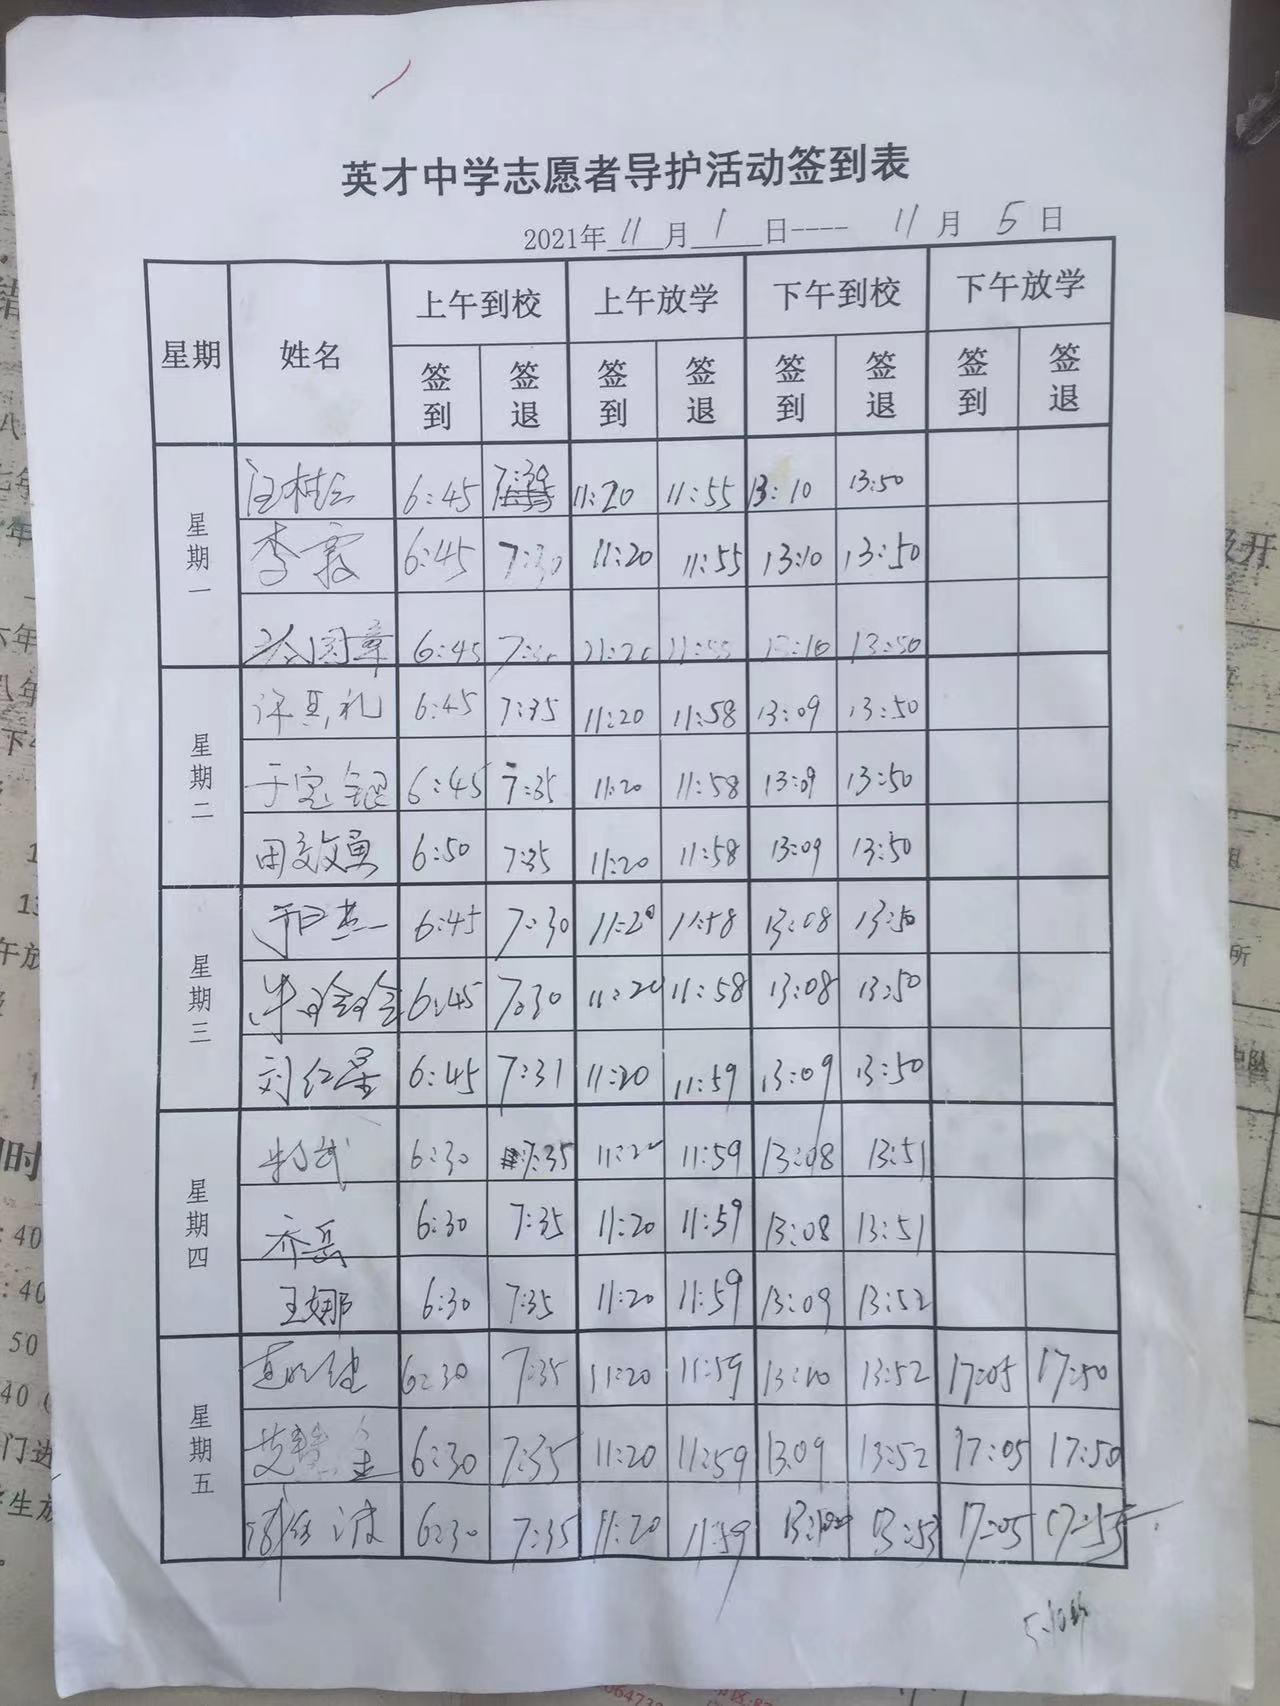 英才中学志愿者导护活动签到表
2021年 11 月 1 日---- 11 月 5 日
星期 姓名 上午到校 上午放学 下午到校 下午放学
签到 签退 签到 签退 签到 签退 签到 签退
星期一
6:45 7:30 11:20 11:55 13:10 13:50
李霞 6:45 7:30 11:20 11:55 13:10 13:50
6:45 7:30 11:20 11:55 13:10 13:50
星期二
6:45 7:35 11:20 11:58 13:09 13:50
于宝银 6:45 7:35 11:20 11:58 13:09 13:50
田效勇 6:50 7:35 11:20 11:58 13:09 13:50
星期三
6:45 7:30 11:20 11:58 13:08 13:50
朱玲玲 6:45 7:30 11:20 11:58 13:08 13:50
刘红星 6:45 7:31 11:20 11:59 13:09 13:50
星期四
6:30 7:35 11:20 11:59 13:08 13:51
齐岳 6:30 7:35 11:20 11:59 13:08 13:51
王娜 6:30 7:35 11:20 11:59 13:09 13:52
星期五
6:30 7:35 11:20 11:59 13:10 13:52 17:05 17:50
6:30 7:35 11:20 11:59 13:09 13:52 17:05 17:50
6:30 7:35 11:20 11:59 13:53 17:05 17:55